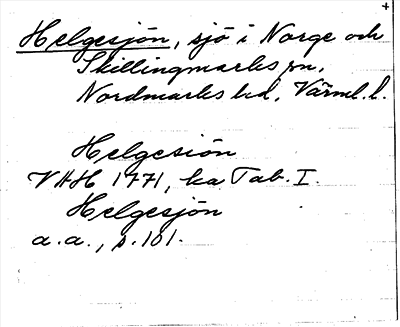 Helgesjön, sjö i Norge och
Skillingmarks sn,
Nordmarks hd, Värml. l.
Helgesiön
VAH 1771, ka Tab. I.
Helgesjön
a.a., s. 101.